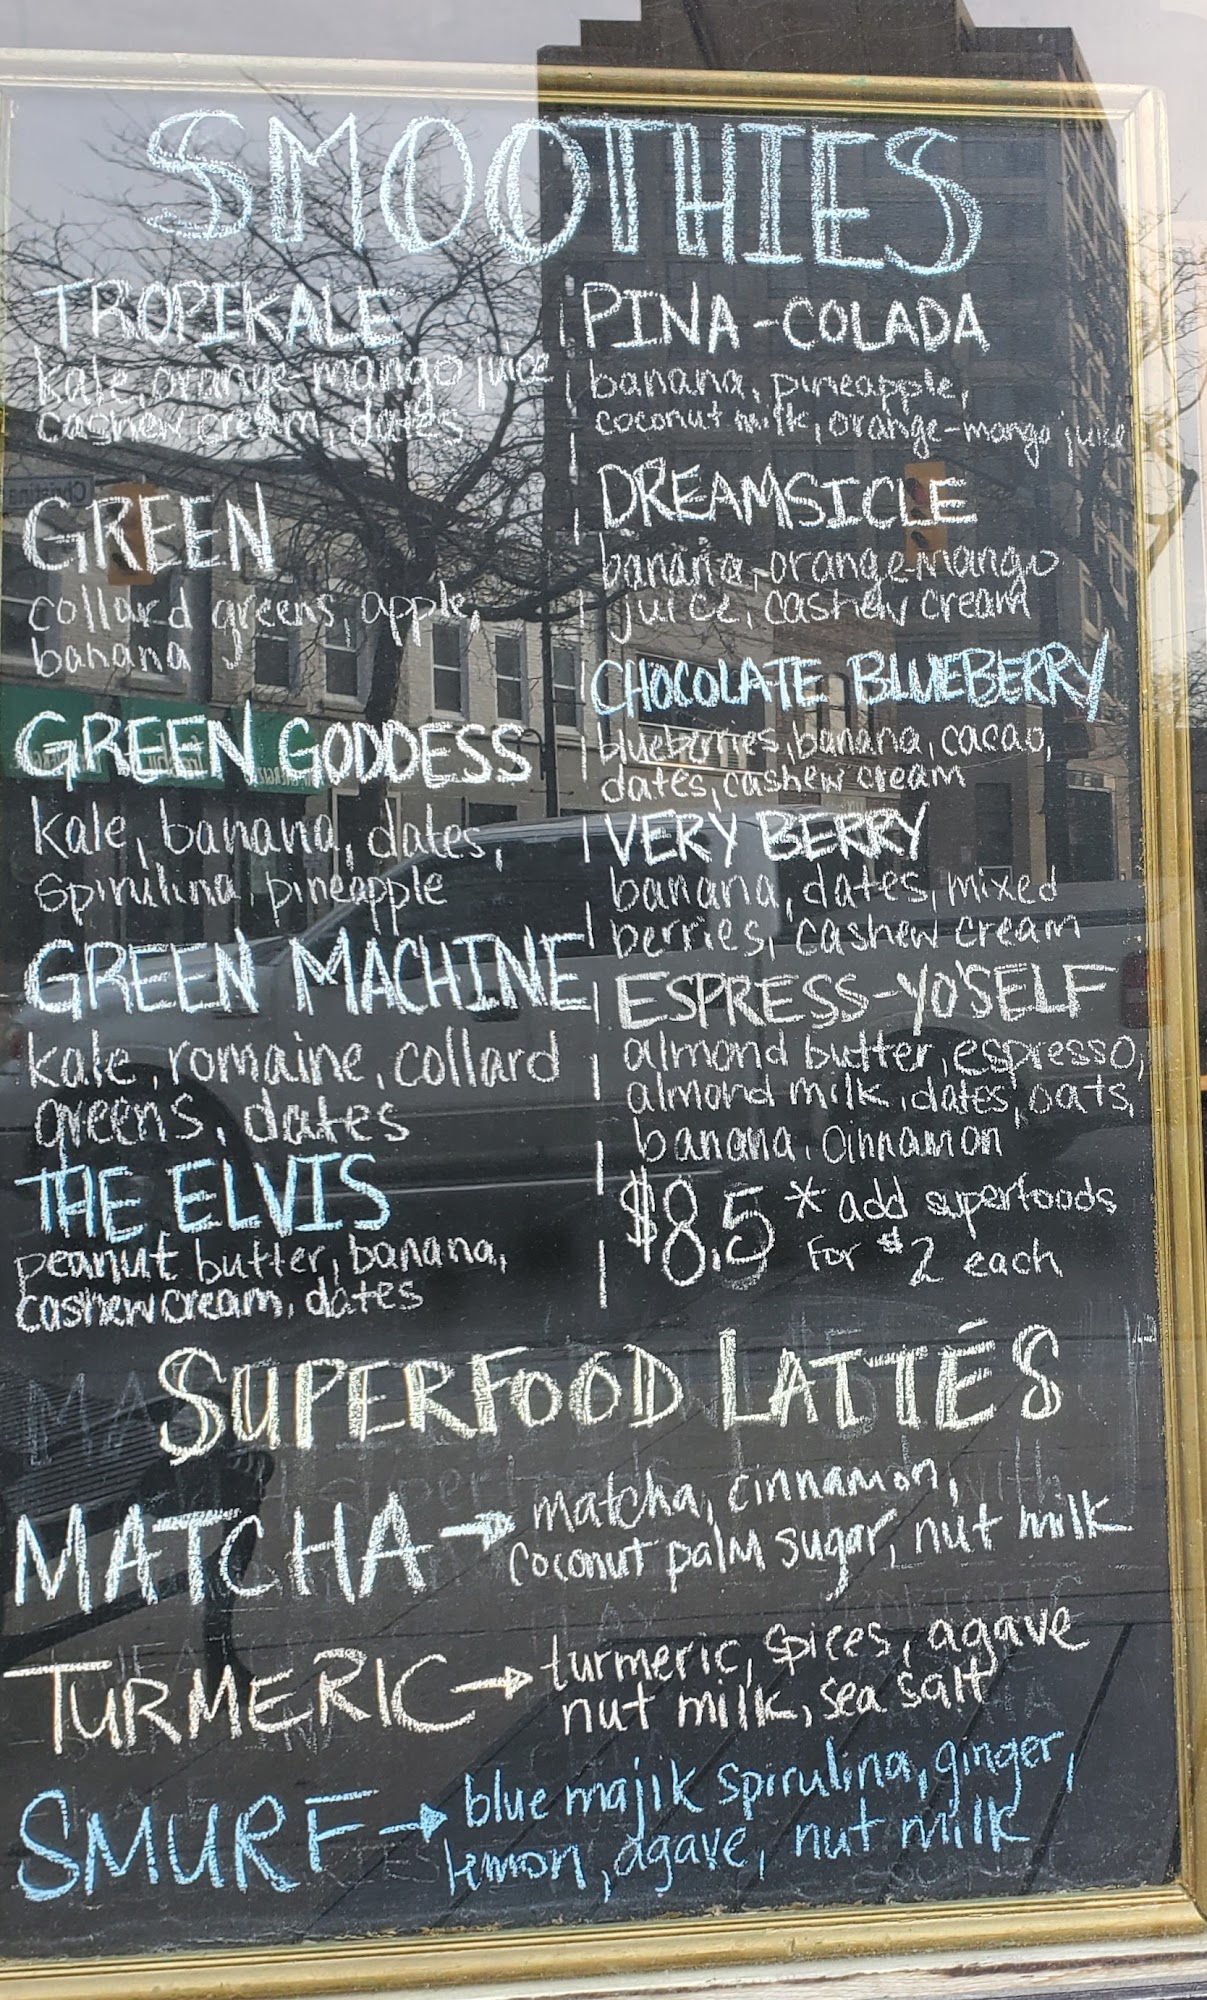 SMOOTHIES
TROPIKALE
kale, orange-mango juice
cashew cream, dates
GREEN
collard greens, apple,
banana
GREEN GODDESS
kale, banana, dates,
spirulina, pineapple
GREEN MACHINE
kale, romaine, collard
greens, dates
THE ELVIS
peanut butter, banana,
cashew cream, dates
PINA-COLADA
banana, pineapple,
coconut milk, orange-mango juice
DREAMSICLE
banana, orange-mango
juice, cashew cream
CHOCOLATE BLUEBERRY
blueberries, banana, cacao,
dates, cashew cream
VERY BERRY
banana, dates, mixed
berries, cashew cream
ESPRESS-YO'SELF
almond butter, espresso,
almond milk, dates, oats,
banana, cinnamon
$8.5 * add superfoods
for $2 each
SUPERFOOD LATTÉS
MATCHA → matcha, cinnamon,
coconut palm sugar, nut milk
TURMERIC → turmeric, spices, agave
nut milk, sea salt
SMURF → blue majik spirulina, ginger,
lemon, agave, nut milk